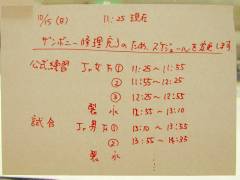 10/15 (日) 11:25 現在
ザンボニー修理完了のため、スケジュールを変更します
公式練習 Jr女子① 11:25~11:55
② 11:55~12:25
③ 12:25~12:55
製氷 12:55~13:10
試合 Jr男子① 13:10~13:35
② 13:55~14:35
製氷